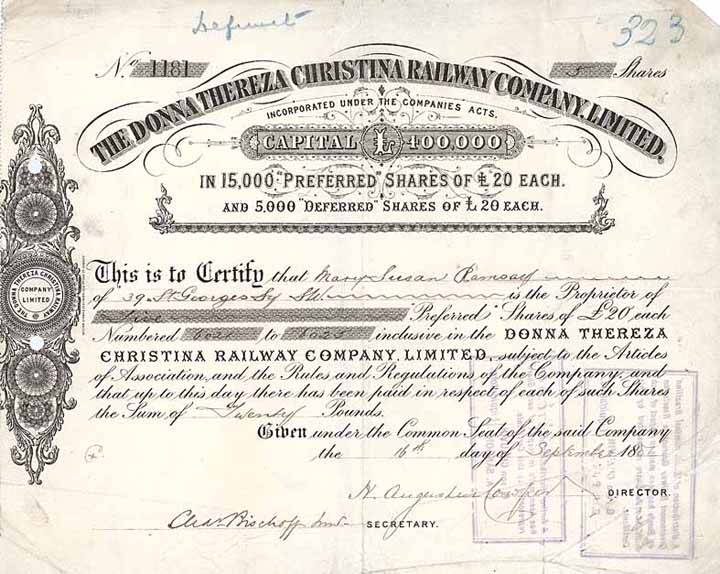 323
No. 1181 5 Shares
THE DONNA THEREZA CHRISTINA RAILWAY COMPANY, LIMITED.
INCORPORATED UNDER THE COMPANIES ACTS.
CAPITAL £400,000
IN 15,000 "PREFERRED" SHARES OF £20 EACH.
AND 5,000 "DEFERRED" SHARES OF £20 EACH.
THE DONNA THEREZA CHRISTINA RAILWAY
COMPANY
LIMITED
This is to Certify that Mary Susan Ramsay
of 39 St. Georges Sq is the Proprietor of
Five "Preferred" Shares of £20 each
Numbered to inclusive in the DONNA THEREZA
CHRISTINA RAILWAY COMPANY, LIMITED, subject to the Articles
of Association, and the Rules and Regulations of the Company, and
that up to this day there has been paid in respect of each of such Shares
the Sum of Twenty Pounds.
Given under the Common Seal of the said Company
the 16th day of September 188
H. Augustus Cowper DIRECTOR.
Chas. Bischoff SECRETARY.